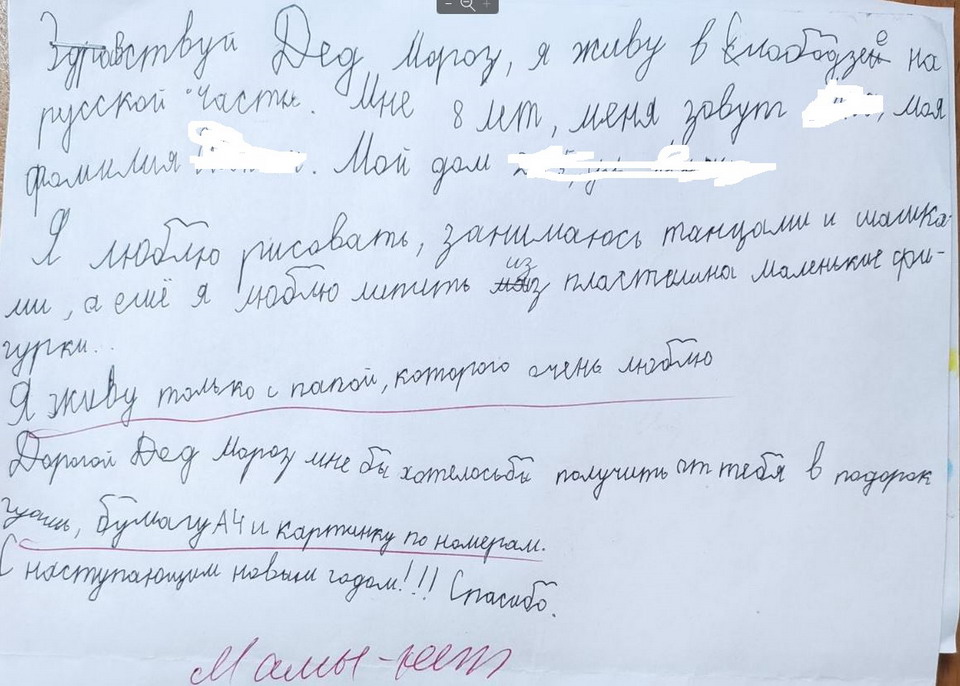 Здравствуй Дед Мороз, я живу в Слободзее на
русской части. Мне 8 лет, меня зовут , моя
фамилия . Мой дом
Я люблю рисовать, занимаюсь танцами и шашка-
ми, а ещё я люблю липить из пластилина маленькие фи-
гурки...
Я живу только с папой, которого очень люблю
Дорогой Дед Мороз мне бы хотелосьбы получить от тебя в подорок
гуашь, бумагу А4 и картинку по номерам.
С наступающим новым годом!!! Спасибо.
Мамы-нет